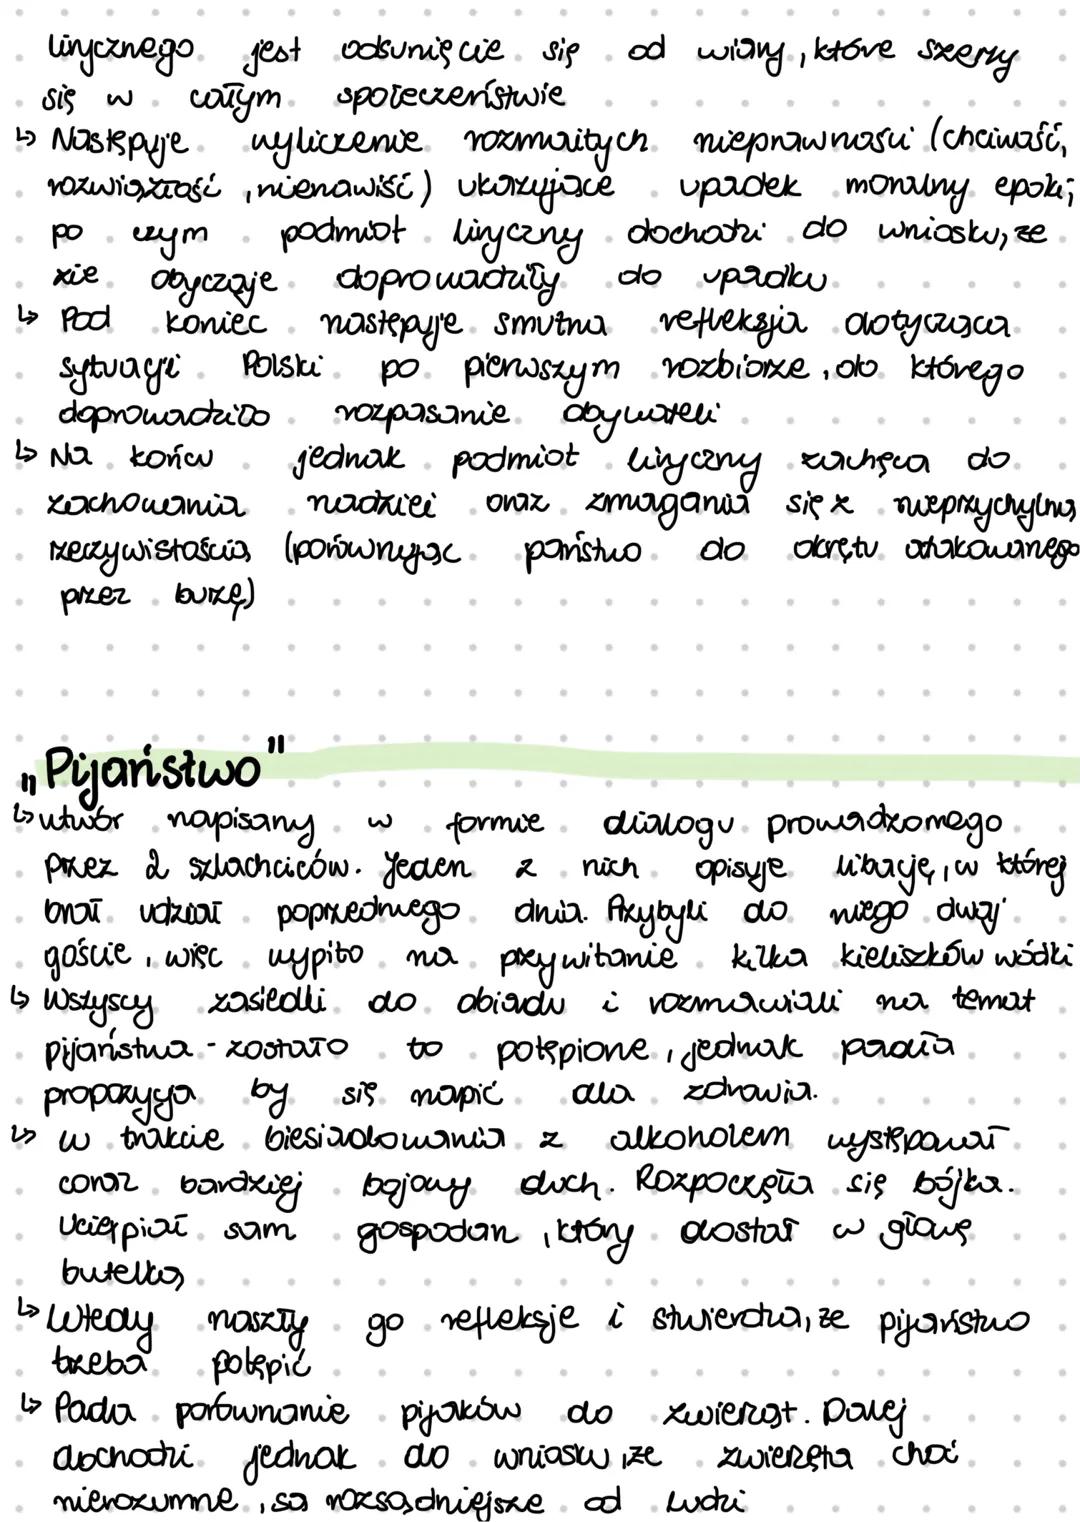 lirycznego jest odsunięcie się od wiary, które szerzy
się w całym społeczeństwie
↳ Następuje wyliczenie rozmaitych nieprawności (chciwość,
rozwiązłość, nienawiść) ukazujące upadek moralny epoki;
po czym podmiot liryczny dochodzi do wniosku, że
złe obyczaje doprowadziły do upadku
↳ Pod koniec następuje smutna refleksja dotycząca
sytuacji Polski po pierwszym rozbiorze, do którego
doprowadziło rozpasanie obywateli
↳ Na końcu jednak podmiot liryczny zachęca do
zachowania nadziei oraz zmagania się z nieprzychylną
rzeczywistością (porównując państwo do okrętu atakowanego
przez burzę)
„Pijaństwo"
↳ utwór napisany w formie dialogu prowadzonego
przez 2 szlachciców. Jeden z nich opisuje libację, w której
brał udział poprzedniego dnia. Przybyli do niego dwaj
goście, więc wypito na przywitanie kilka kieliszków wódki
↳ Wszyscy zasiedli do obiadu i rozmawiali na temat
pijaństwa - zostało to potępione, jednak padła
propozycja by się napić dla zdrowia.
↳ w trakcie biesiadowania z alkoholem występował
coraz bardziej bojowy duch. Rozpoczęła się bójka.
Ucierpiał sam gospodarz, który dostał w głowę
butelką
↳ Wtedy naszły go refleksje i stwierdza, że pijaństwo
trzeba potępić
↳ Pada porównanie pijaków do zwierząt. Dalej
dochodzi jednak do wniosku, że zwierzęta choć
nierozumne, są rozsądniejsze od ludzi